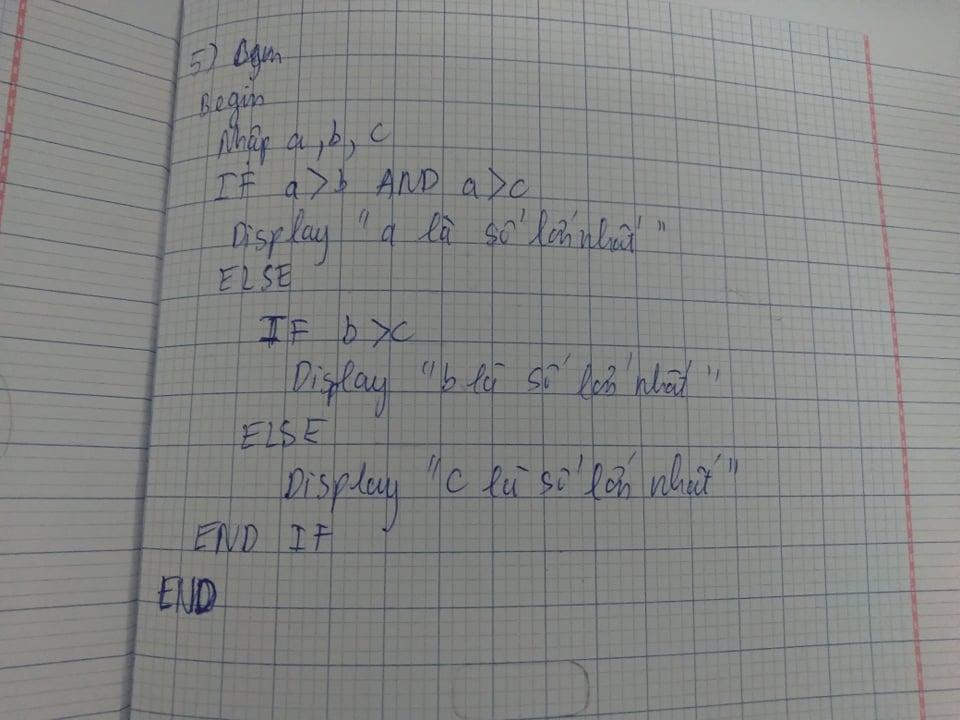 5) Bgin
Begin
Nhập a, b, c
IF a > b AND a > c
Display "a là số lớn nhất"
ELSE
IF b > c
Display "b là số lớn nhất"
ELSE
Display "c là số lớn nhất"
END IF
END